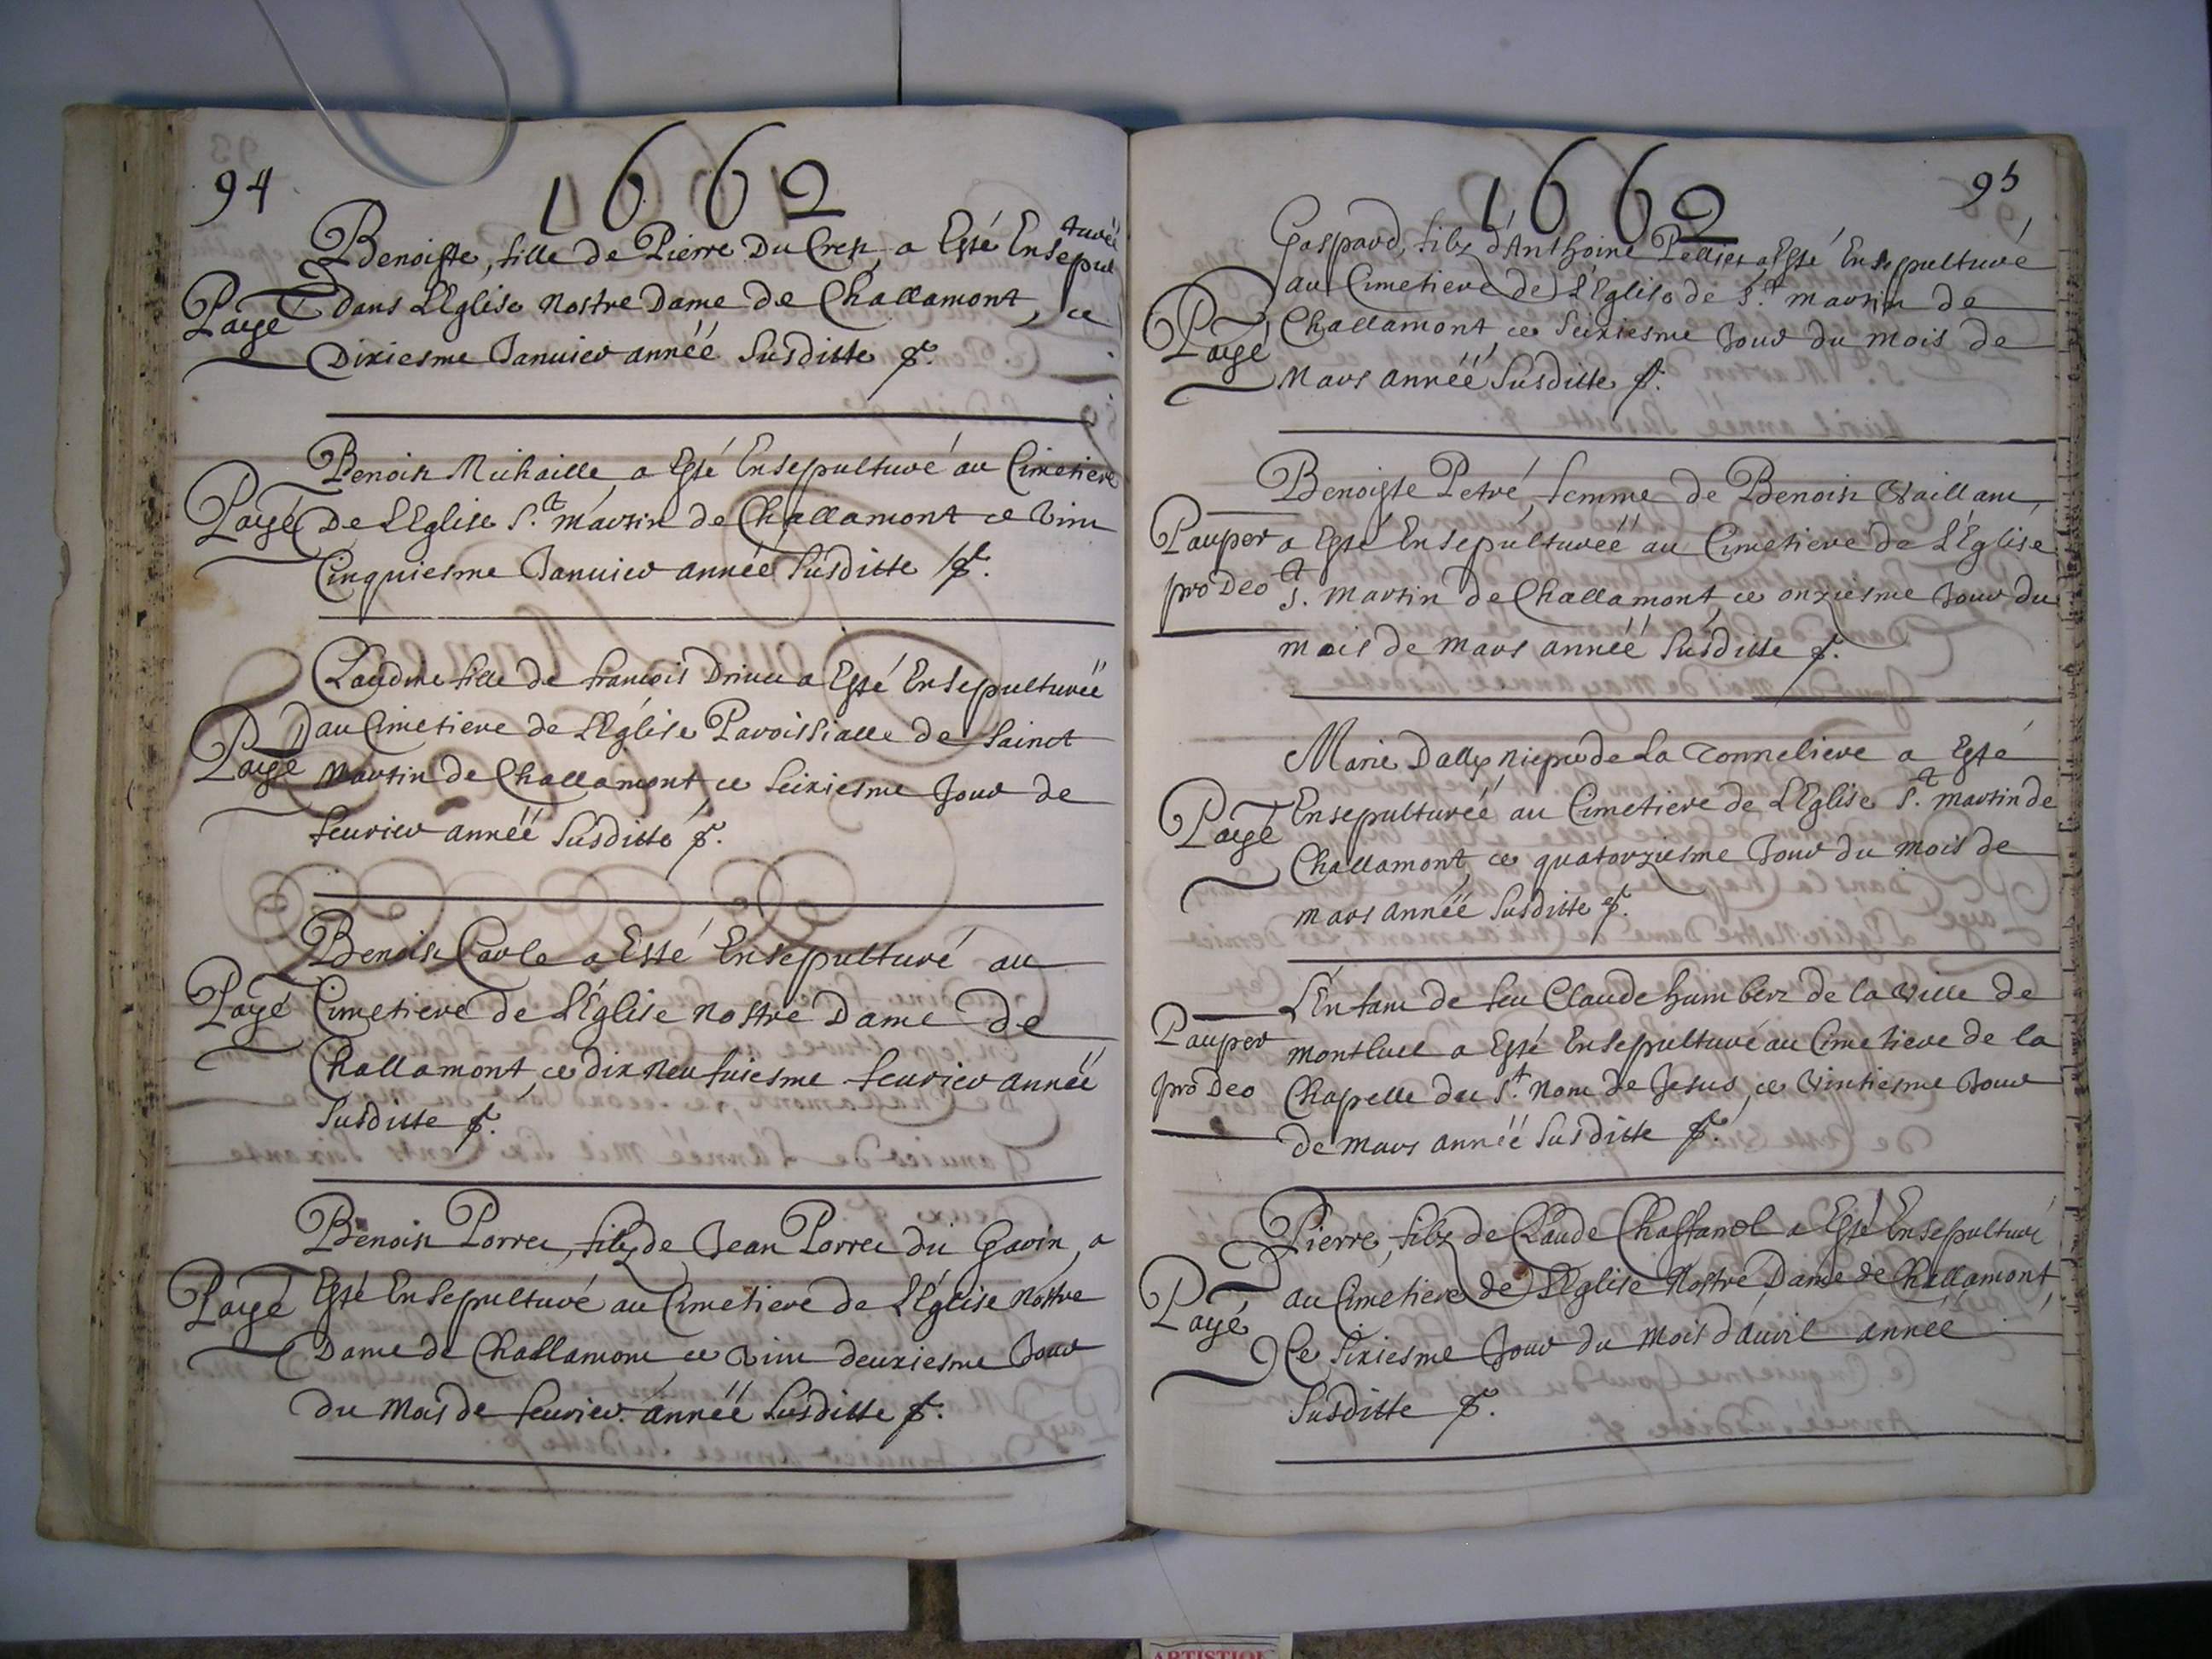 94
1662
Benoiste, fille de Pierre Du Cret, a Esté Ensepul
turéé
Payé
dans L'Eglise Nostre Dame de Challamont, ce
Dixiesme Januier annéé Susditte
Benoist Michaille, a Esté Ensepulturé au Cimetiere
Payé
De L'Eglise S.t Martin de Challamont ce Vint
Cinquiesme Januier annéé Susditte
Claudine fille de francois a Esté Ensepulturéé
Payé
au Cimetiere de L'Eglise Paroissialle de Sainct
Martin de Challamont ce Seiziesme Jour de
feurier annéé Susditte
Benoist Carle a Esté Ensepulturé au
Payé
Cimetiere de L'Eglise Nostre Dame de
Challamont, ce dix Neufuiesme feurier annéé
Susditte
Benoist Porret, filz de Jean Porret du Gavin, a
Payé
Esté Ensepulturé au Cimetiere de L'Eglise Nostre
Dame de Challamont ce Vint deuxiesme Jour
du Mois de feurier annéé Susditte
95
1662
Gaspard, filz d'Anthoine Pellier, a Esté Ensepulturé
au Cimetiere de L'Eglise de S.t Martin de
Payé
Challamont, ce Seiziesme Jour du mois de
Mars annéé Susditte
Benoiste Petré, femme de Benoist Vaillant,
Pauper
a Esté Ensepulturéé au Cimetiere de L'Eglise
pro Deo
S.t Martin de Challamont, ce onziesme Jour du
mois de Mars annéé Susditte
Marie Dally Niepce de La Tonneliere a Esté
Payé
Ensepulturéé au Cimetiere de L'Eglise S.t Martin de
Challamont, ce quatorziesme Jour du mois de
mars annéé Susditte
L'Enfant de feu Claude humbert de la Ville de
Pauper
Montluel a Esté Ensepulturé au Cimetiere de la
pro Deo
Chapelle du S.t Nom de Jesus, ce Vintiesme Jour
de Mars annéé Susditte
Pierre, filz de Claude Chaffanol a Esté Ensepulturé
Payé
au Cimetiere de L'Eglise Nostre Dame de Challamont,
Ce Sixiesme Jour du Mois d'auril année
Susditte